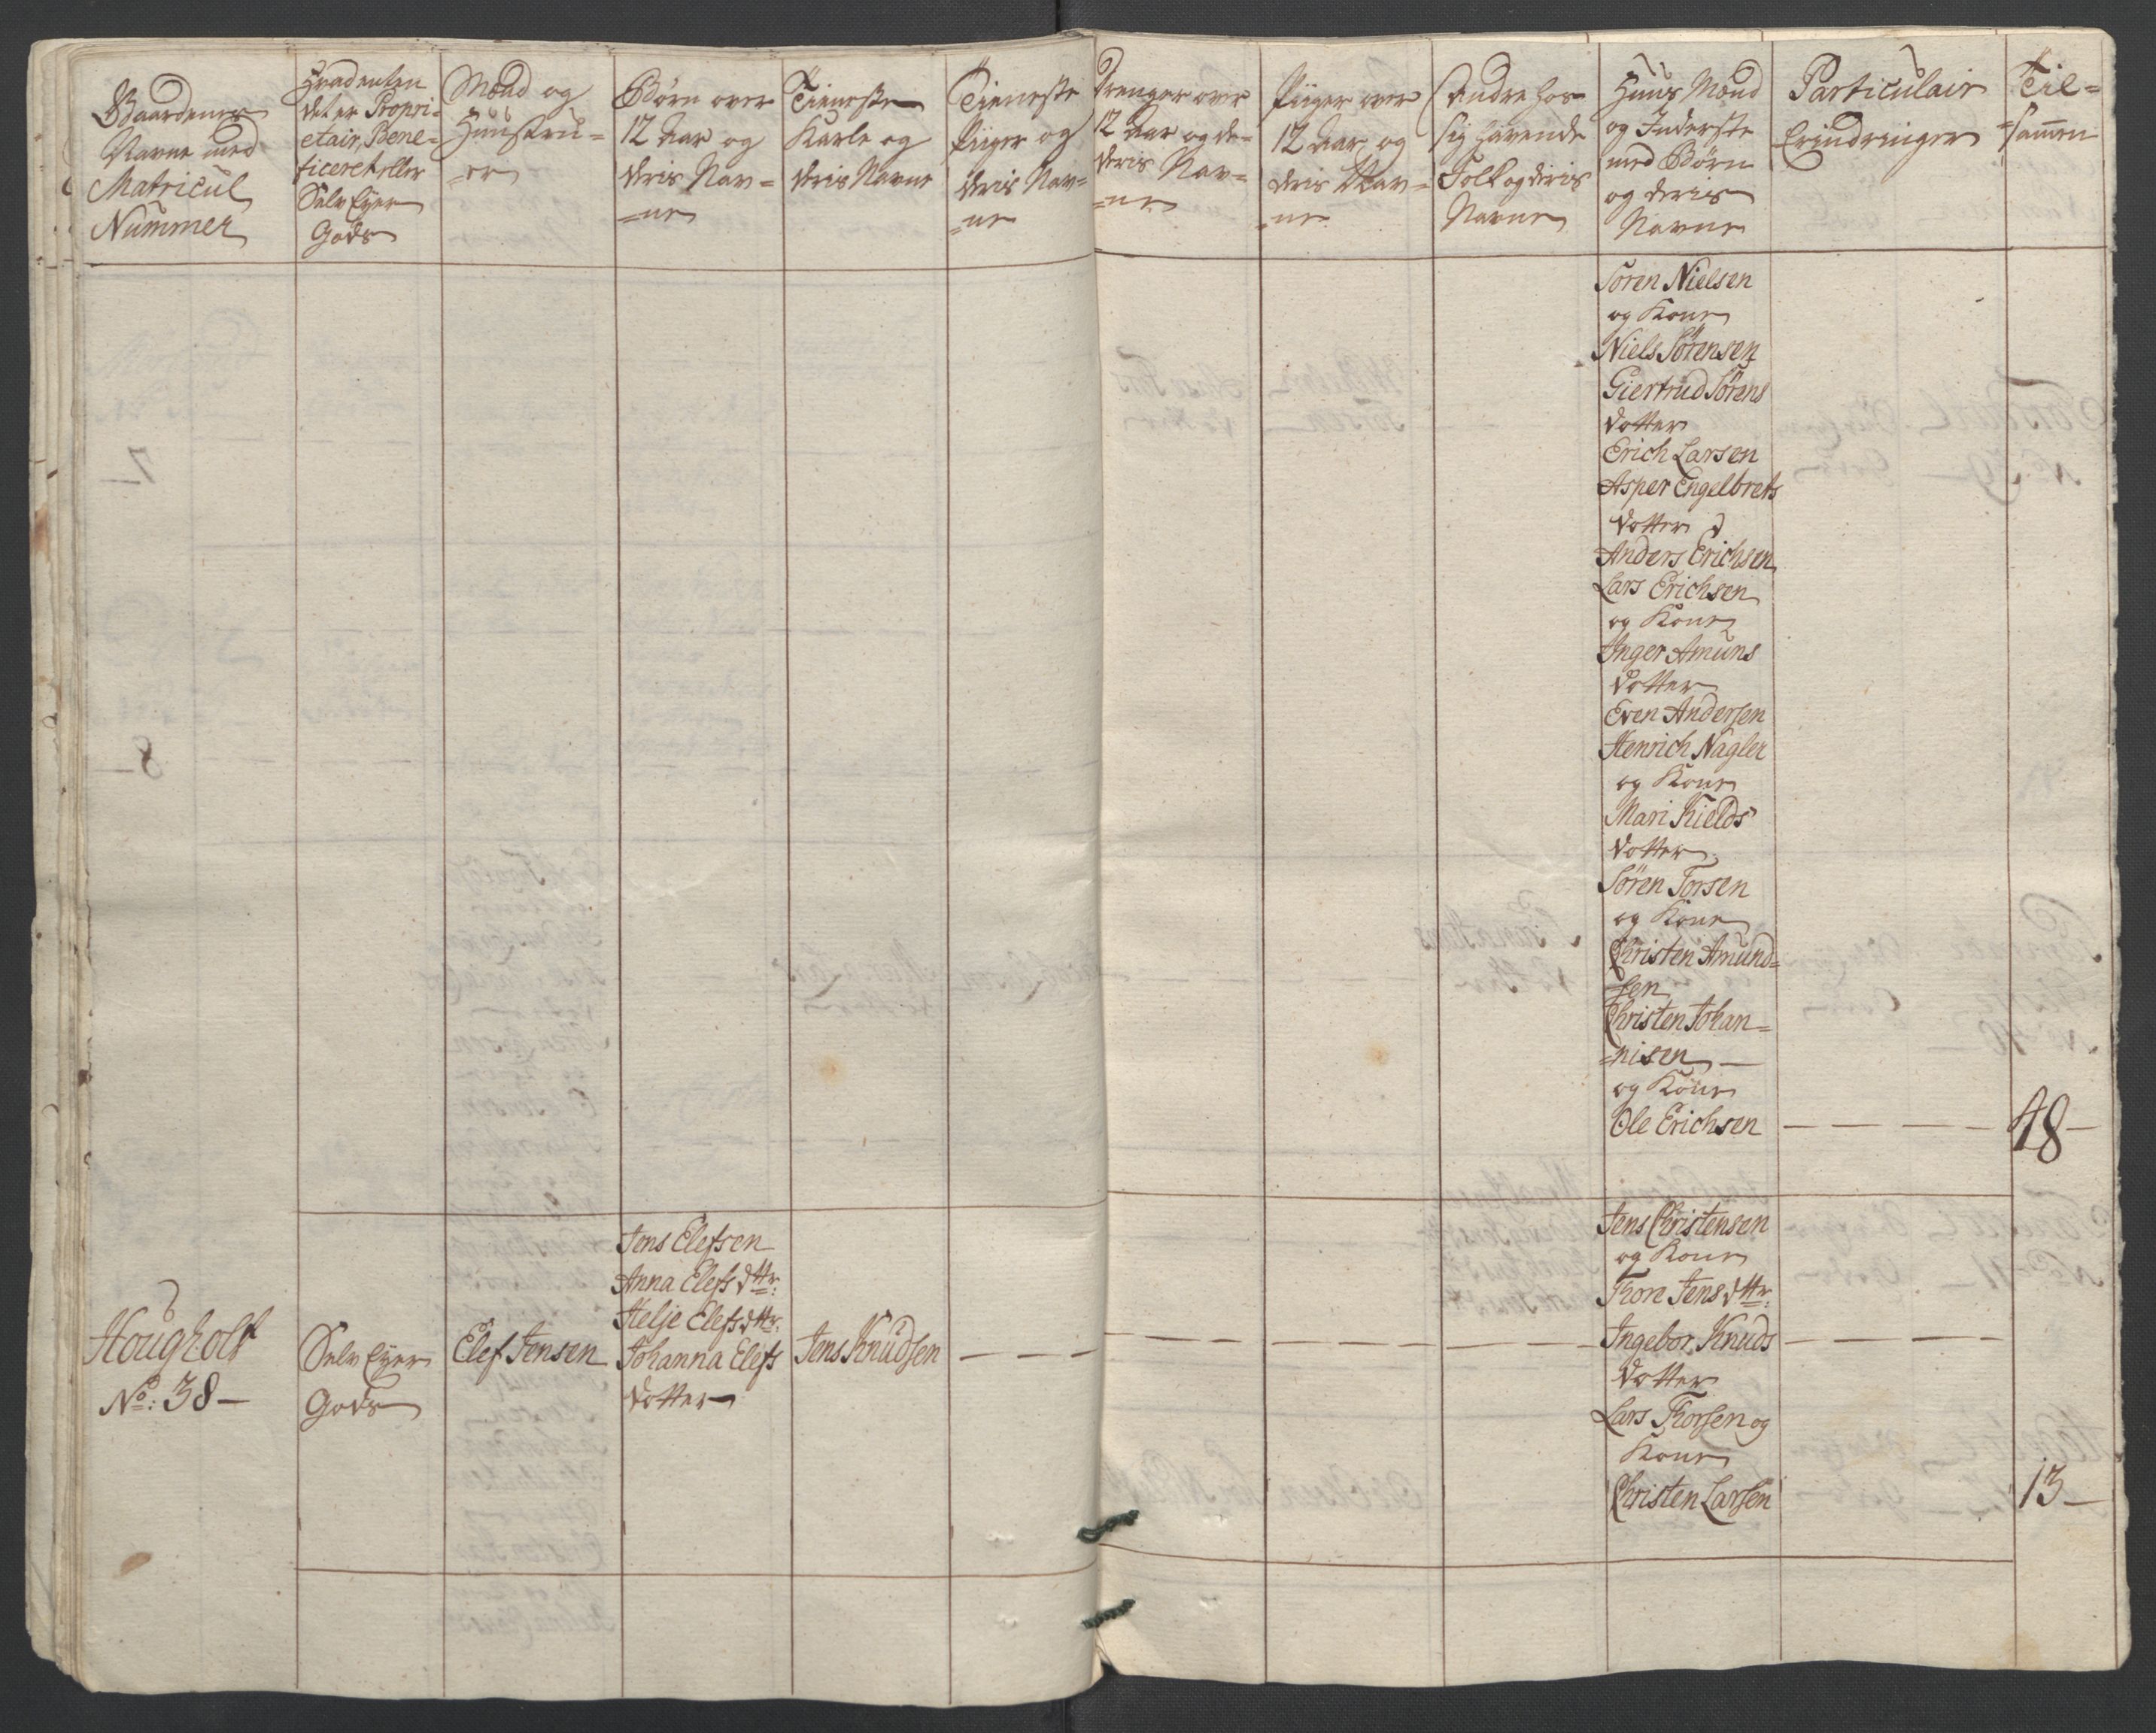 Gaardenes
Navne med
Matricul
Nummer
Hvadenten
det er Propri-
etair, Bene-
ficeret eller
Selv Eyer
Gods
Mænd og
Hustru-
=er
Børn over
12 Aar og
deris Nav=
=ne
Tieneste
Karle og
deris Navne
Tieneste
Piiger og
deris Nav=
=ne
Drenger over
12 Aar og de-
deris Nav=
=ne
Piiger over
12 Aar og
deris Nav=
=ne
Andre hos
sig havende
Folk og deris
Navne
Huus Mænd
og Inderste
med Børn
og deris
Navne
Particulair
Erindringer
Til=
=sammen
Søren Nielsen
og Kone
Niels Sørensen
Giertrud Sørens
dotter
Erich Larsen
Asper Engelbrets
dotter
Anders Erichsen
Lars Erichsen
og Kone
Inger Amuns
dotter
Even Andersen
Henrich Nagler
og Kone
Mari Kields
dotter
Søren Torsen
og Kone
Christen Amund=
=sen
Christen Johan=
=nisen —
og Kone
Ole Erichsen — — — — 48 —
Hougholt
No: 38 —
Selv Eyer
Gods
Elef Jensen
Jens Elefsen
Anna Elefs dttr:
Helje Elefs dttr:
Johanna Elefs
dotter
Jens Knudsen — — — — — — — — —
Jens Christensen
og Kone
Thore Jens dttr:
Ingebor Knuds — — — —
dotter
Lars Thorsen og
Kone
Christen Larsen
13 —